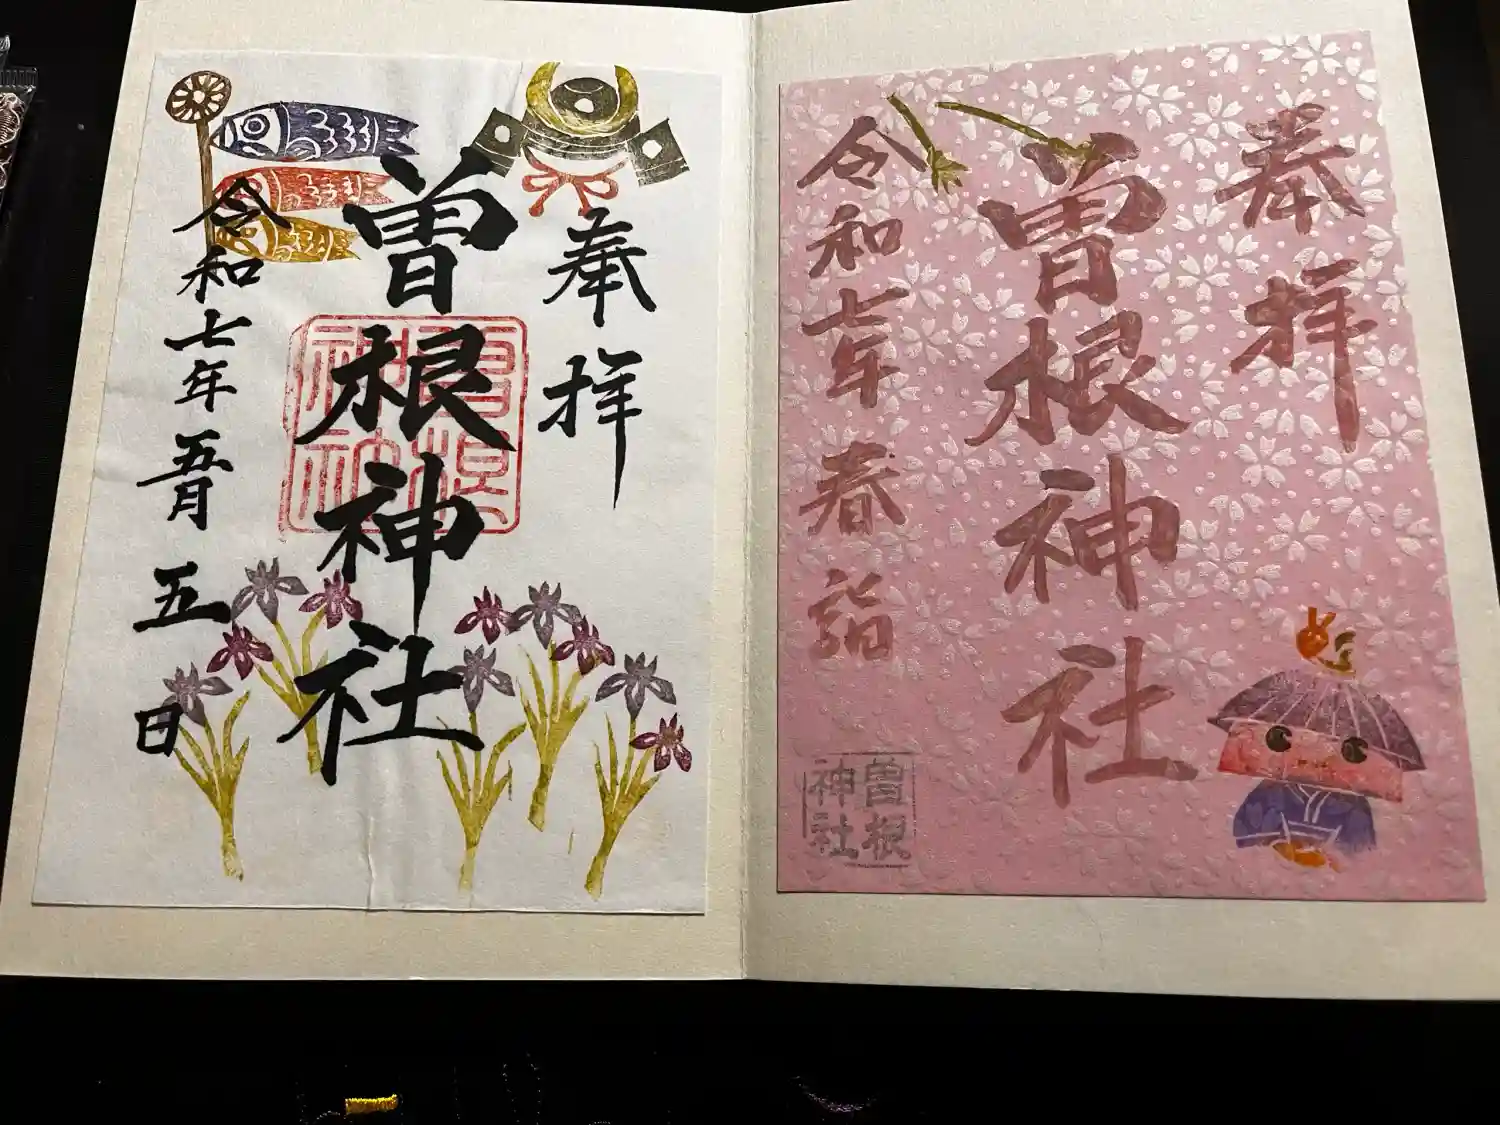 奉拝
曽根神社
令和七年春詣
曽根
神社
奉拝
曽根神社
令和七年五月五日
曽根
神社